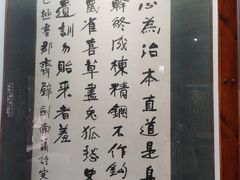 心為治本直道是身
幹終成棟精鋼不作鉤
鼠雀喜草盡兔狐愁史
遺訓勿貽來者羞
拯書郡齋壁